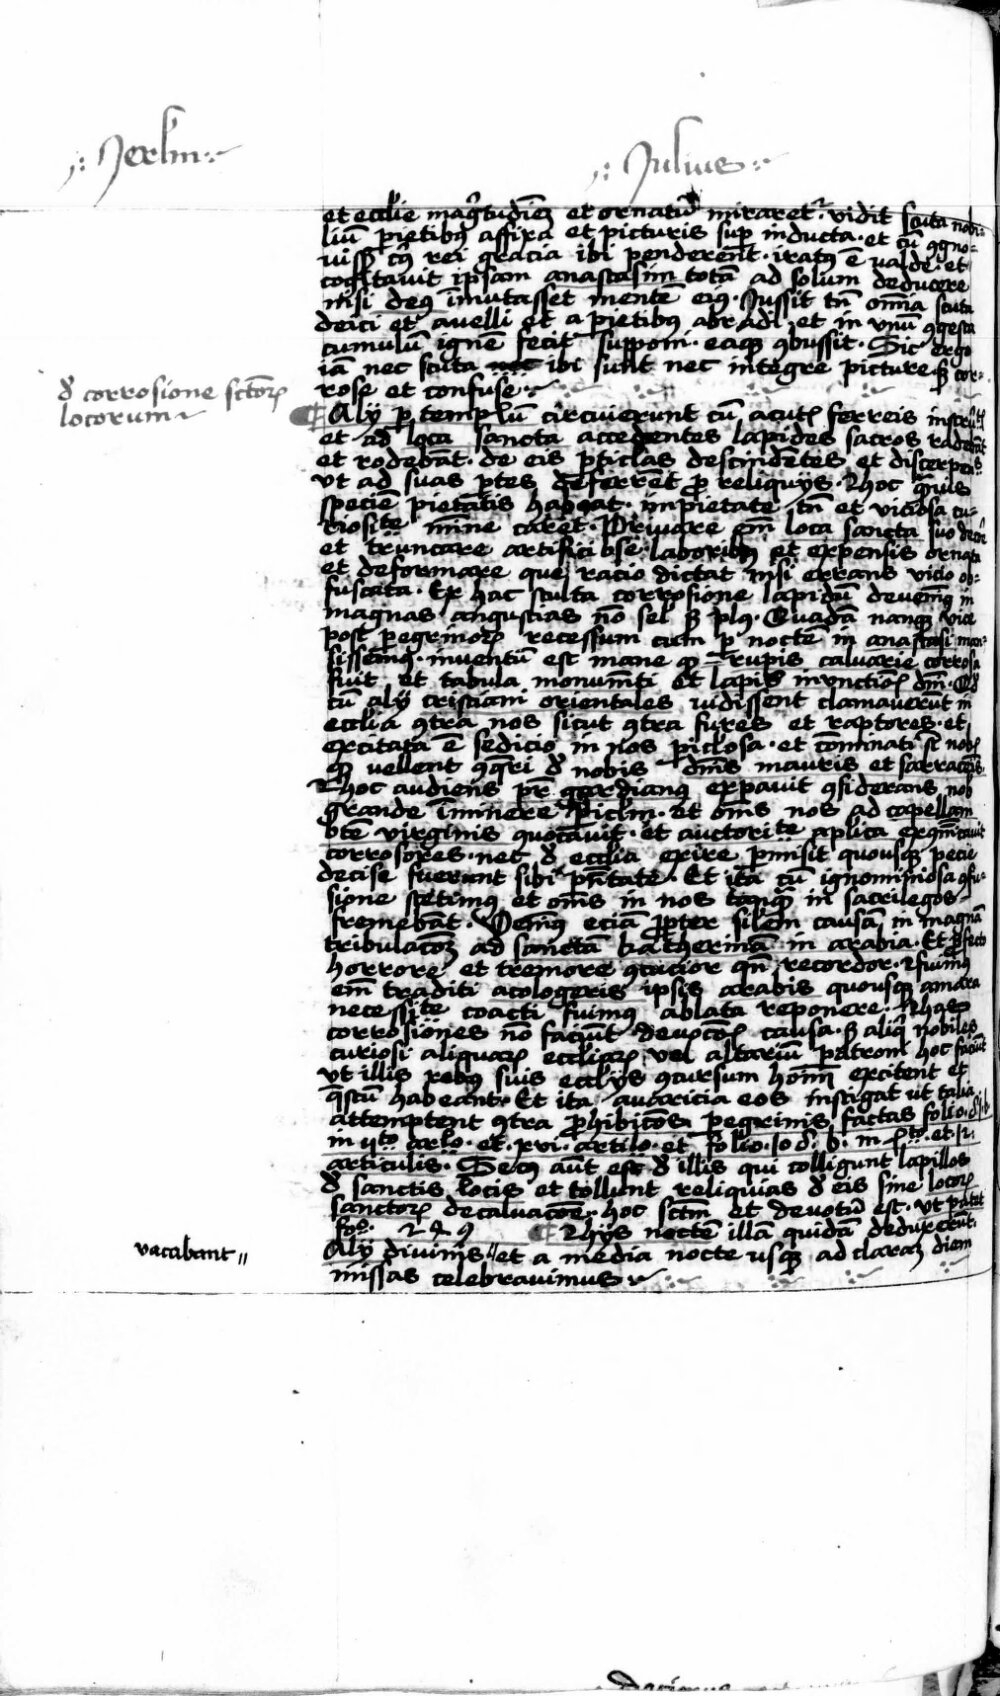 .: Jerlm :.
.: Julius :.
et ecclie magͥtudiēȝ et ornatū miraretᷣ. vidit scuta nobi-
liū pietibꝰ affixa et picturis sup inducta. et cū ꝯgno-
uissȝ cuiꝰ rei gracia ibi penderēnt. iratꝰ ē valde. et
cogitavit ipsam anastasim totā ad solum deducere
nisi deꝰ īmutasset mentē eiꝰ. Jussit tn̄ om̄ia scuta
deici et avelli et a pietibꝰ abradi. et in vnū ꝯgesta
cumulū ignē fecit supponi. eaqꝫ ꝯbussit. Sic ergo
iā nec scuta ibi sunt nec integre picture sȝ cor-
rose et confuse.
ꝺ corrosione sctoꝝ
locorum
¶ Alij ꝑ templū circuierunt cū acutꝭ ferreis instrūtꝭ
et ad loca sancta accedentes lapides sacros radebāt
et rodebāt. de eis ꝑticlas descindētes et discerpētꝭ
vt ad suas ꝑtes deferrēt ꝓ reliquijs. Hoc qͣuis
speciē pietatis habeat. impietate tn̄ et viciosa cu-
riosite mīne caret. Privare em̄ loca sancta suo decōr
et truncare artificiose laboribꝰ et expensis ornata
et deformare que racio dictat nisi errans vicio ob-
fuscata. Ex hac stulta corrosione lapidū devenimꝰ in
magnas angustias nō sel sȝ plꝰ. Quadā nanqꝫ vice
post ꝑegrinoꝝ recessum cum ꝑ noctē in anastasi man-
sissemꝰ. inventū est mane qȝ rupis calvarie corrosa
fuit et tabula monumīti et lapis invnctiōꝭ dm̄. Qd
cū alij cristiani orientales vidissent clamaverūt in
ecclia ꝯtra nos sicut ꝯtra fures et raptores. et
excitata ē sedicio in nos piclosa. et cōminati st̄ nobꝭ
qȝ vellent ꝯqͥri ꝺ nobis dm̄s mauris et sarracenis.
Hoc audiens pr̄ gͣardianꝰ expavit ꝯsiderans nob
grande īminere piclm. et om̄s nos ad capellam
bt̄e virginis vocavit. et auctorite aplica exqͫicavit
corrosores. nec ꝺ ecclia exire ꝑmisit quousqꝫ pecie
decise fuerunt sibi pn̄tate. Et ita cū ignominiosa ꝯfu-
sione stetimꝰ et om̄s in nos tanqꝫ in sacrilegos
fremebāt. Venimꝰ eciā ꝓpter silem causā in magnā
tribulacōȝ ad sanctā katherinā in arabia. Et ꝓfecto
horrore et tremore ꝯcucior qn̄ recordor. fuimꝰ
em̄ traditi acologeris ipsis arabis quousqꝫ amara
necessite coacti fuimꝰ ablata reponere. Has
corrosiones nō faciūt devocōꝭ causa. sȝ aliqͥ nobiles
curiosi aliquaꝝ eccliaꝝ vel altariū patroni hoc faciūt
vt illis rebꝰ suis ecclijs ꝯcursum hoīm excitent et
qͣstū habeant. Et ita avaricia eos instigat ut talia
attemptent ꝯtra ꝓhibicōs ꝑegrinis factas folio.
in ijto arlo. et. xvi. artilo. et folio.
articulis. Secꝰ aūt est ꝺ illis qui colligunt lapillos
ꝺ sanctis locis et tollunt reliquias ꝺ eis sine locoꝝ
sanctoꝝ decalvacōe. hoc sctm et devotū est. vt patet
foº. ¶ Hijs noctē illā quidā deduxerūt.
vacabant //
Alij divinis // et a media nocte usqꝫ ad claraȝ diem
missas celebravimus